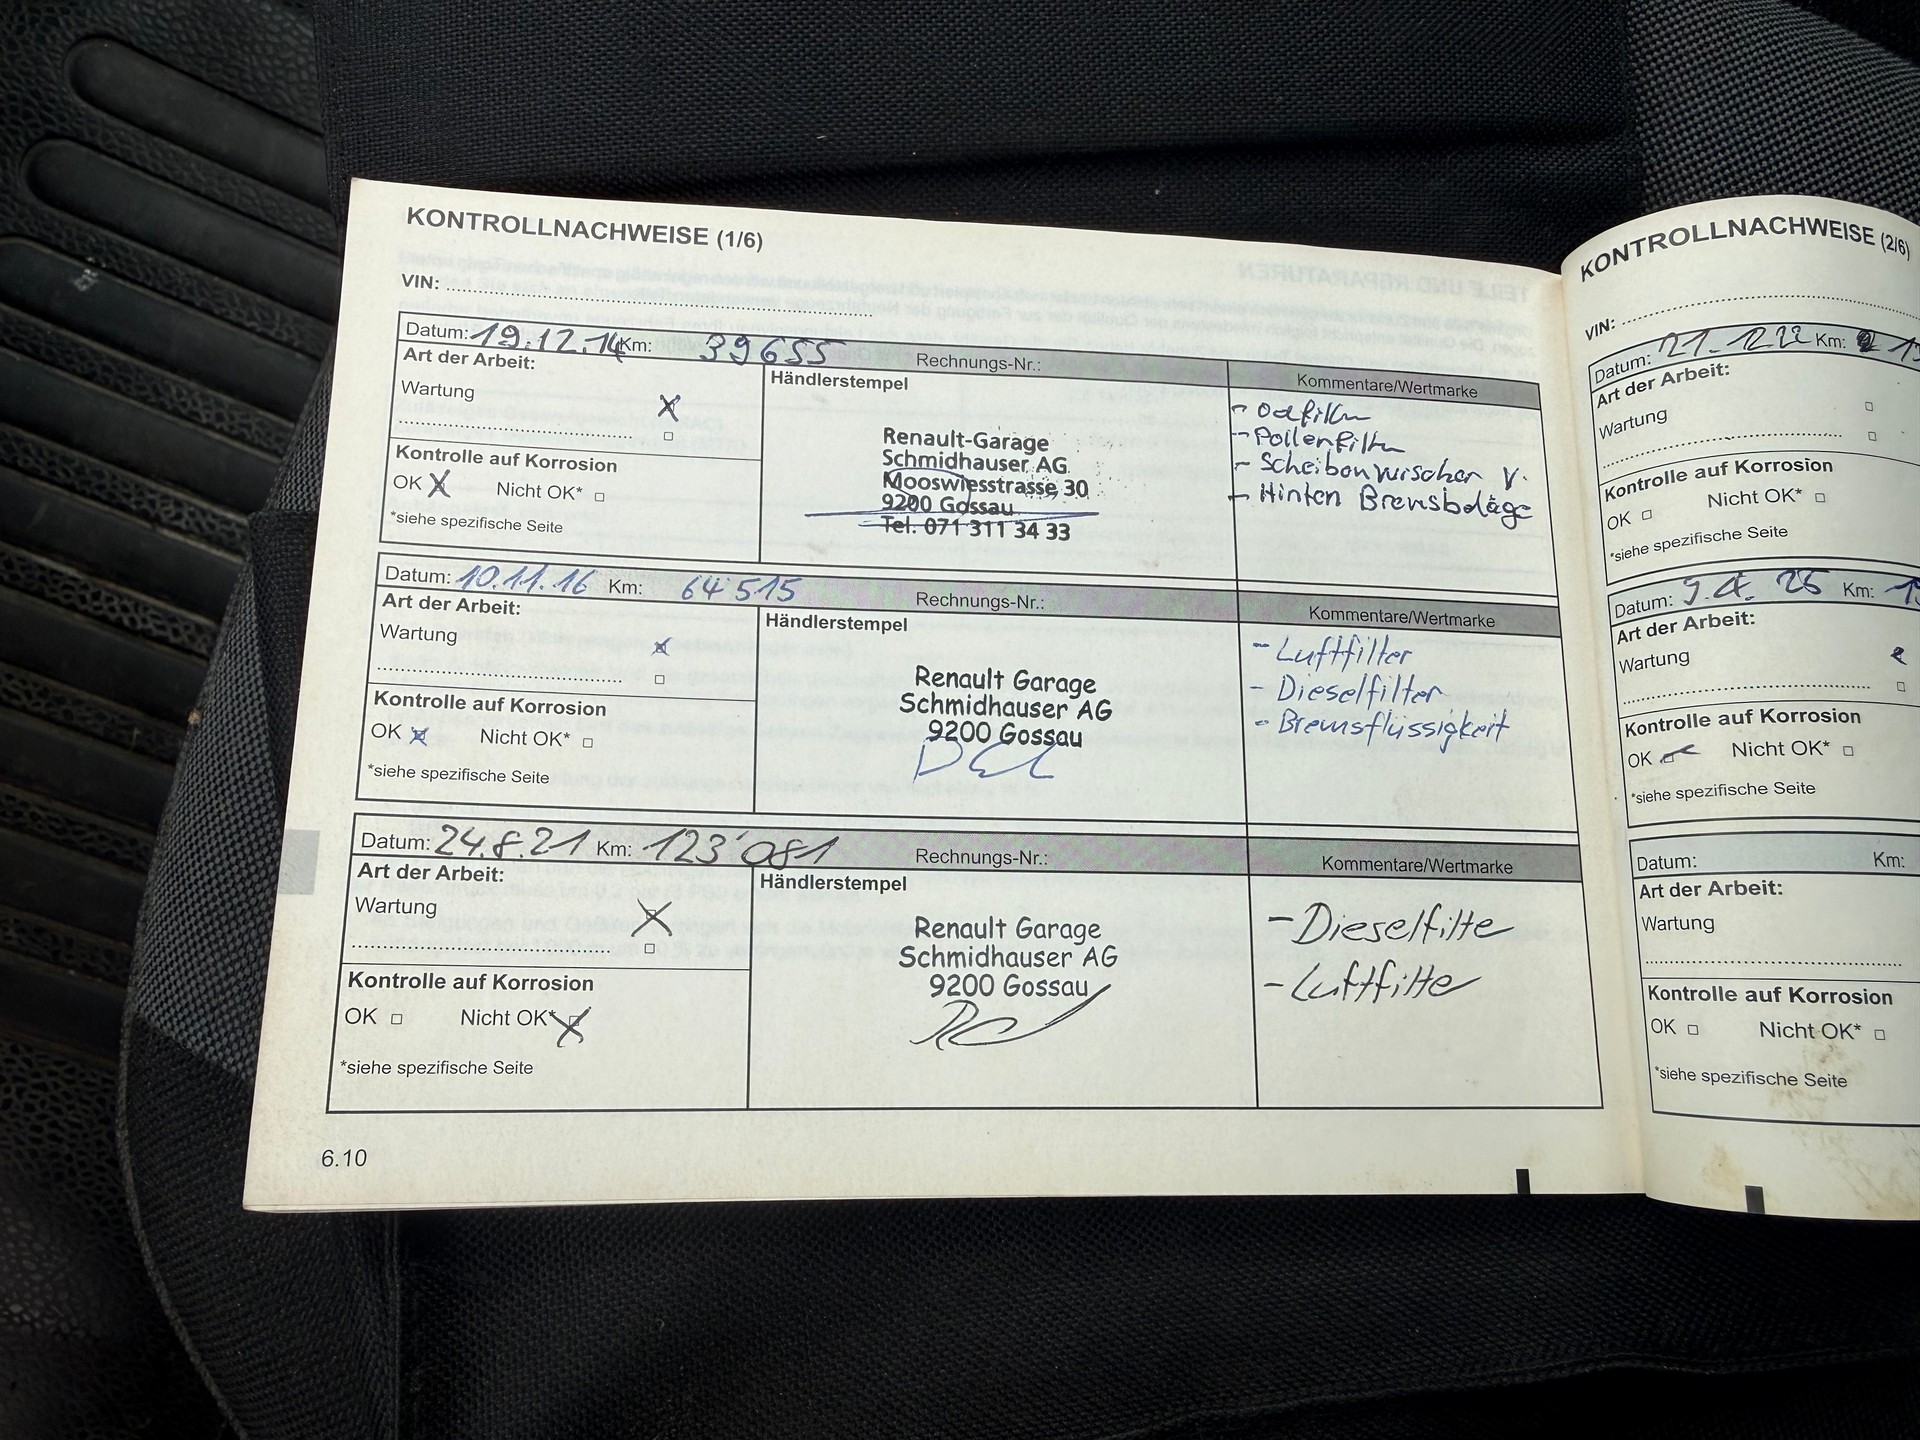 KONTROLLNACHWEISE (1/6)
VIN:
Datum: 19.12.14 Km: 39655 Rechnungs-Nr.:
Art der Arbeit:
Wartung
Kontrolle auf Korrosion
OK X Nicht OK*
*siehe spezifische Seite
Händlerstempel
Renault-Garage
Schmidhauser AG
Mooswiesstrasse 30
9200 Gossau
Tel. 071 311 34 33
Kommentare/Wertmarke
- Pollenfilter
- Scheibenwischer V.
- Hinten Bremsbeläge
Datum: 10.11.16 Km: 64'515 Rechnungs-Nr.:
Art der Arbeit:
Wartung
Kontrolle auf Korrosion
OK Nicht OK*
*siehe spezifische Seite
Händlerstempel
Renault Garage
Schmidhauser AG
9200 Gossau
Kommentare/Wertmarke
- Luftfilter
- Dieselfilter
- Bremsflüssigkeit
Datum: 24.8.21 Km: 123'081 Rechnungs-Nr.:
Art der Arbeit:
Wartung
Kontrolle auf Korrosion
OK Nicht OK*
*siehe spezifische Seite
Händlerstempel
Renault Garage
Schmidhauser AG
9200 Gossau
Kommentare/Wertmarke
- Dieselfilte
- Luftfilte
6.10
KONTROLLNACHWEISE (2/6)
VIN:
Datum: Km:
Art der Arbeit:
Wartung
Kontrolle auf Korrosion
OK Nicht OK*
*siehe spezifische Seite
Datum: 9.4.25 Km:
Art der Arbeit:
Wartung
Kontrolle auf Korrosion
OK Nicht OK*
*siehe spezifische Seite
Datum: Km:
Art der Arbeit:
Wartung
Kontrolle auf Korrosion
OK Nicht OK*
*siehe spezifische Seite